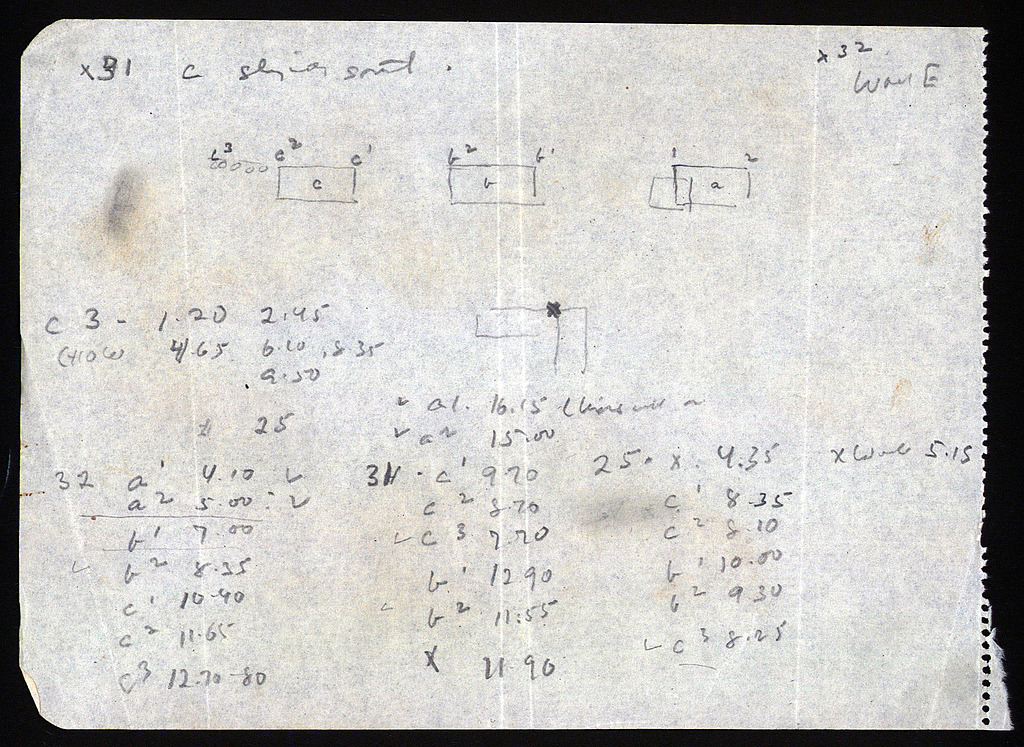 x31 c south.
x32
Wall E
c3 c2 c1 b2 b1 1 2
c b a
x
c 3 - 1.20 2.45
4.65 6.10 , 8.35
9.50
x 25
✓ a1. 16.15
✓ a2 15.00
32 a1 4.10 ✓
a2 5.00 ✓
b1 7.00
✓ b2 8.35
c1 10.40
c2 11.65
c3 12.70-80
31 - c1 9.70
c2 8.70
✓ c3 7.70
b1 12.90
b2 11.55
x 11.90
25. x. 4.35
c1 8.35
c2 8.10
b1 10.00
b2 9.30
✓ c3 8.25
x wall 5.15